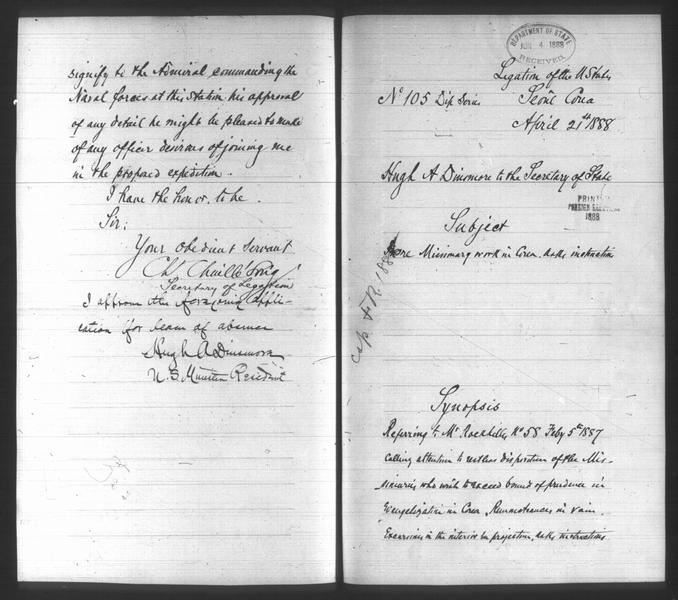 signify to the Admiral commanding the
Naval forces at this Station his approval
of any detail he might be pleased to make
of any officer desirous of joining me
in the proposed expedition.
I have the honor, to be
Sir:
Your obedient servant
Ch. Chaillé Long
Secretary of Legation
I approve the foregoing appli-
cation for leave of absence
Hugh A Dinsmore
U.S. Minister Resident
DEPARTMENT OF STATE
JUN 4 1888
RECEIVED
Legation of the U States
Seoul Corea
No 105 Dip Series
April 21st 1888
Hugh A Dinsmore to the Secretary of State
PRINTED
FOREIGN RELATIONS
1888
Subject
Missionary work in Corea. Asks instruction
cop. F.R. 188
Synopsis
Referring to Mr Rockhill's No 58 Feby 5th 1887
calling attention to restless disposition of the Mis-
sionaries who wish to exceed bound of prudence in
Evangelization in Corea. Remonstrances in vain.
Excursions in the interior in projection, asks instructions